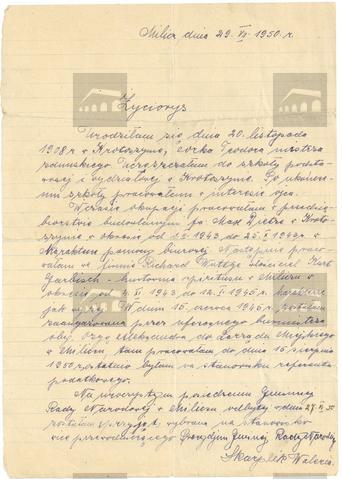 Milicz dnia 29. VI. 1950. r.
Życiorys
Urodziłam się dnia 20. listopada
1908 r w Krotoszynie, córka Teodora mistrza
zduńskiego. Uczęszczałam do szkoły podsta-
wowej i wydziałowej w Krotoszynie. Po ukończe-
niu szkoły pracowałam w interesie ojca.
W czasie okupacji pracowałam w przedsię-
biorstwie budowlanym fa Max w Kroto-
szynie w okresie od 1.4.1943 do 25.5.1943 w
charakterze pomocy biurowej. Następnie praco-
wałam w firmie Richard właściciel Kurt
Garbisch - hurtownia spirytusu w Miliczu w
okresie od 1943 do 12. 1945 w charakterze
jak wyżej. W dniu 15. czerwca 1945 r. zostałam
zaangażowana przez ówczesnego burmistrza
oby. do Zarządu Miejskiego
w Miliczu, tam pracowałam do dnia 15 sierpnia
1950 ostatnio byłam na stanowisku referenta
podatkowego.
Na uroczystym posiedzeniu Gminnej
Rady Narodowej w Miliczu odbytej w dniu 27. 50
zostałam wybrana na stanowisko
przewodniczącego Prezydium Gminnej Rady Narodowej
Skarplik Waleria